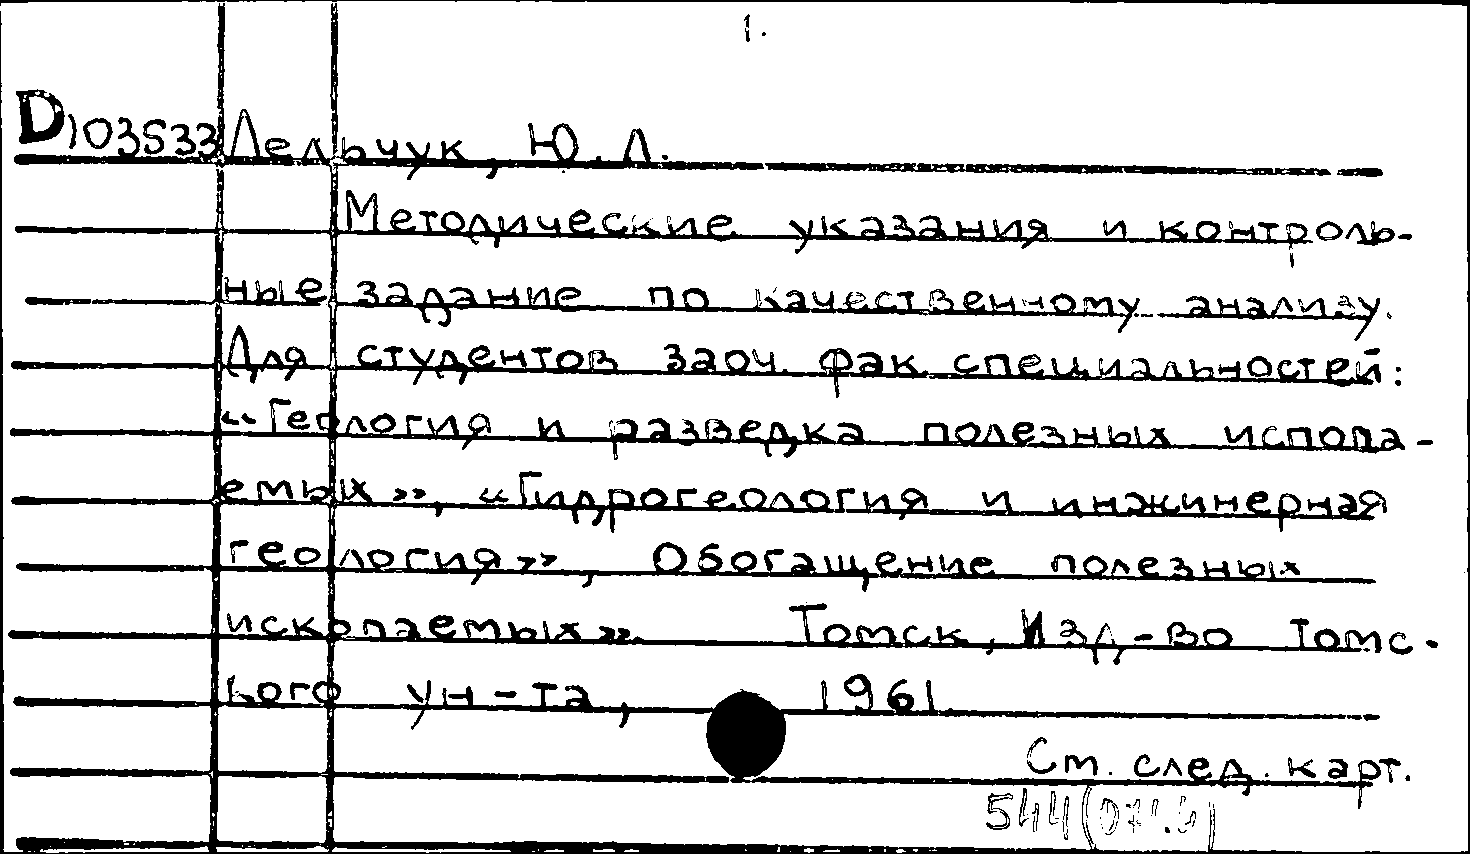 1.
D103533 Лельчук, Ю. Л.
Методические указания и контроль-
ные задание по качественному анализу.
Для студентов заоч. фак. специальностей:
«Геология и разведка полезных испопа-
емых», «Гидрогеология и инжинерная
геология», Обогащение полезных
ископаемых». Томск, Изд-во Томс-
кого ун-та, 1961.
См. след. карт.
544(071.4)